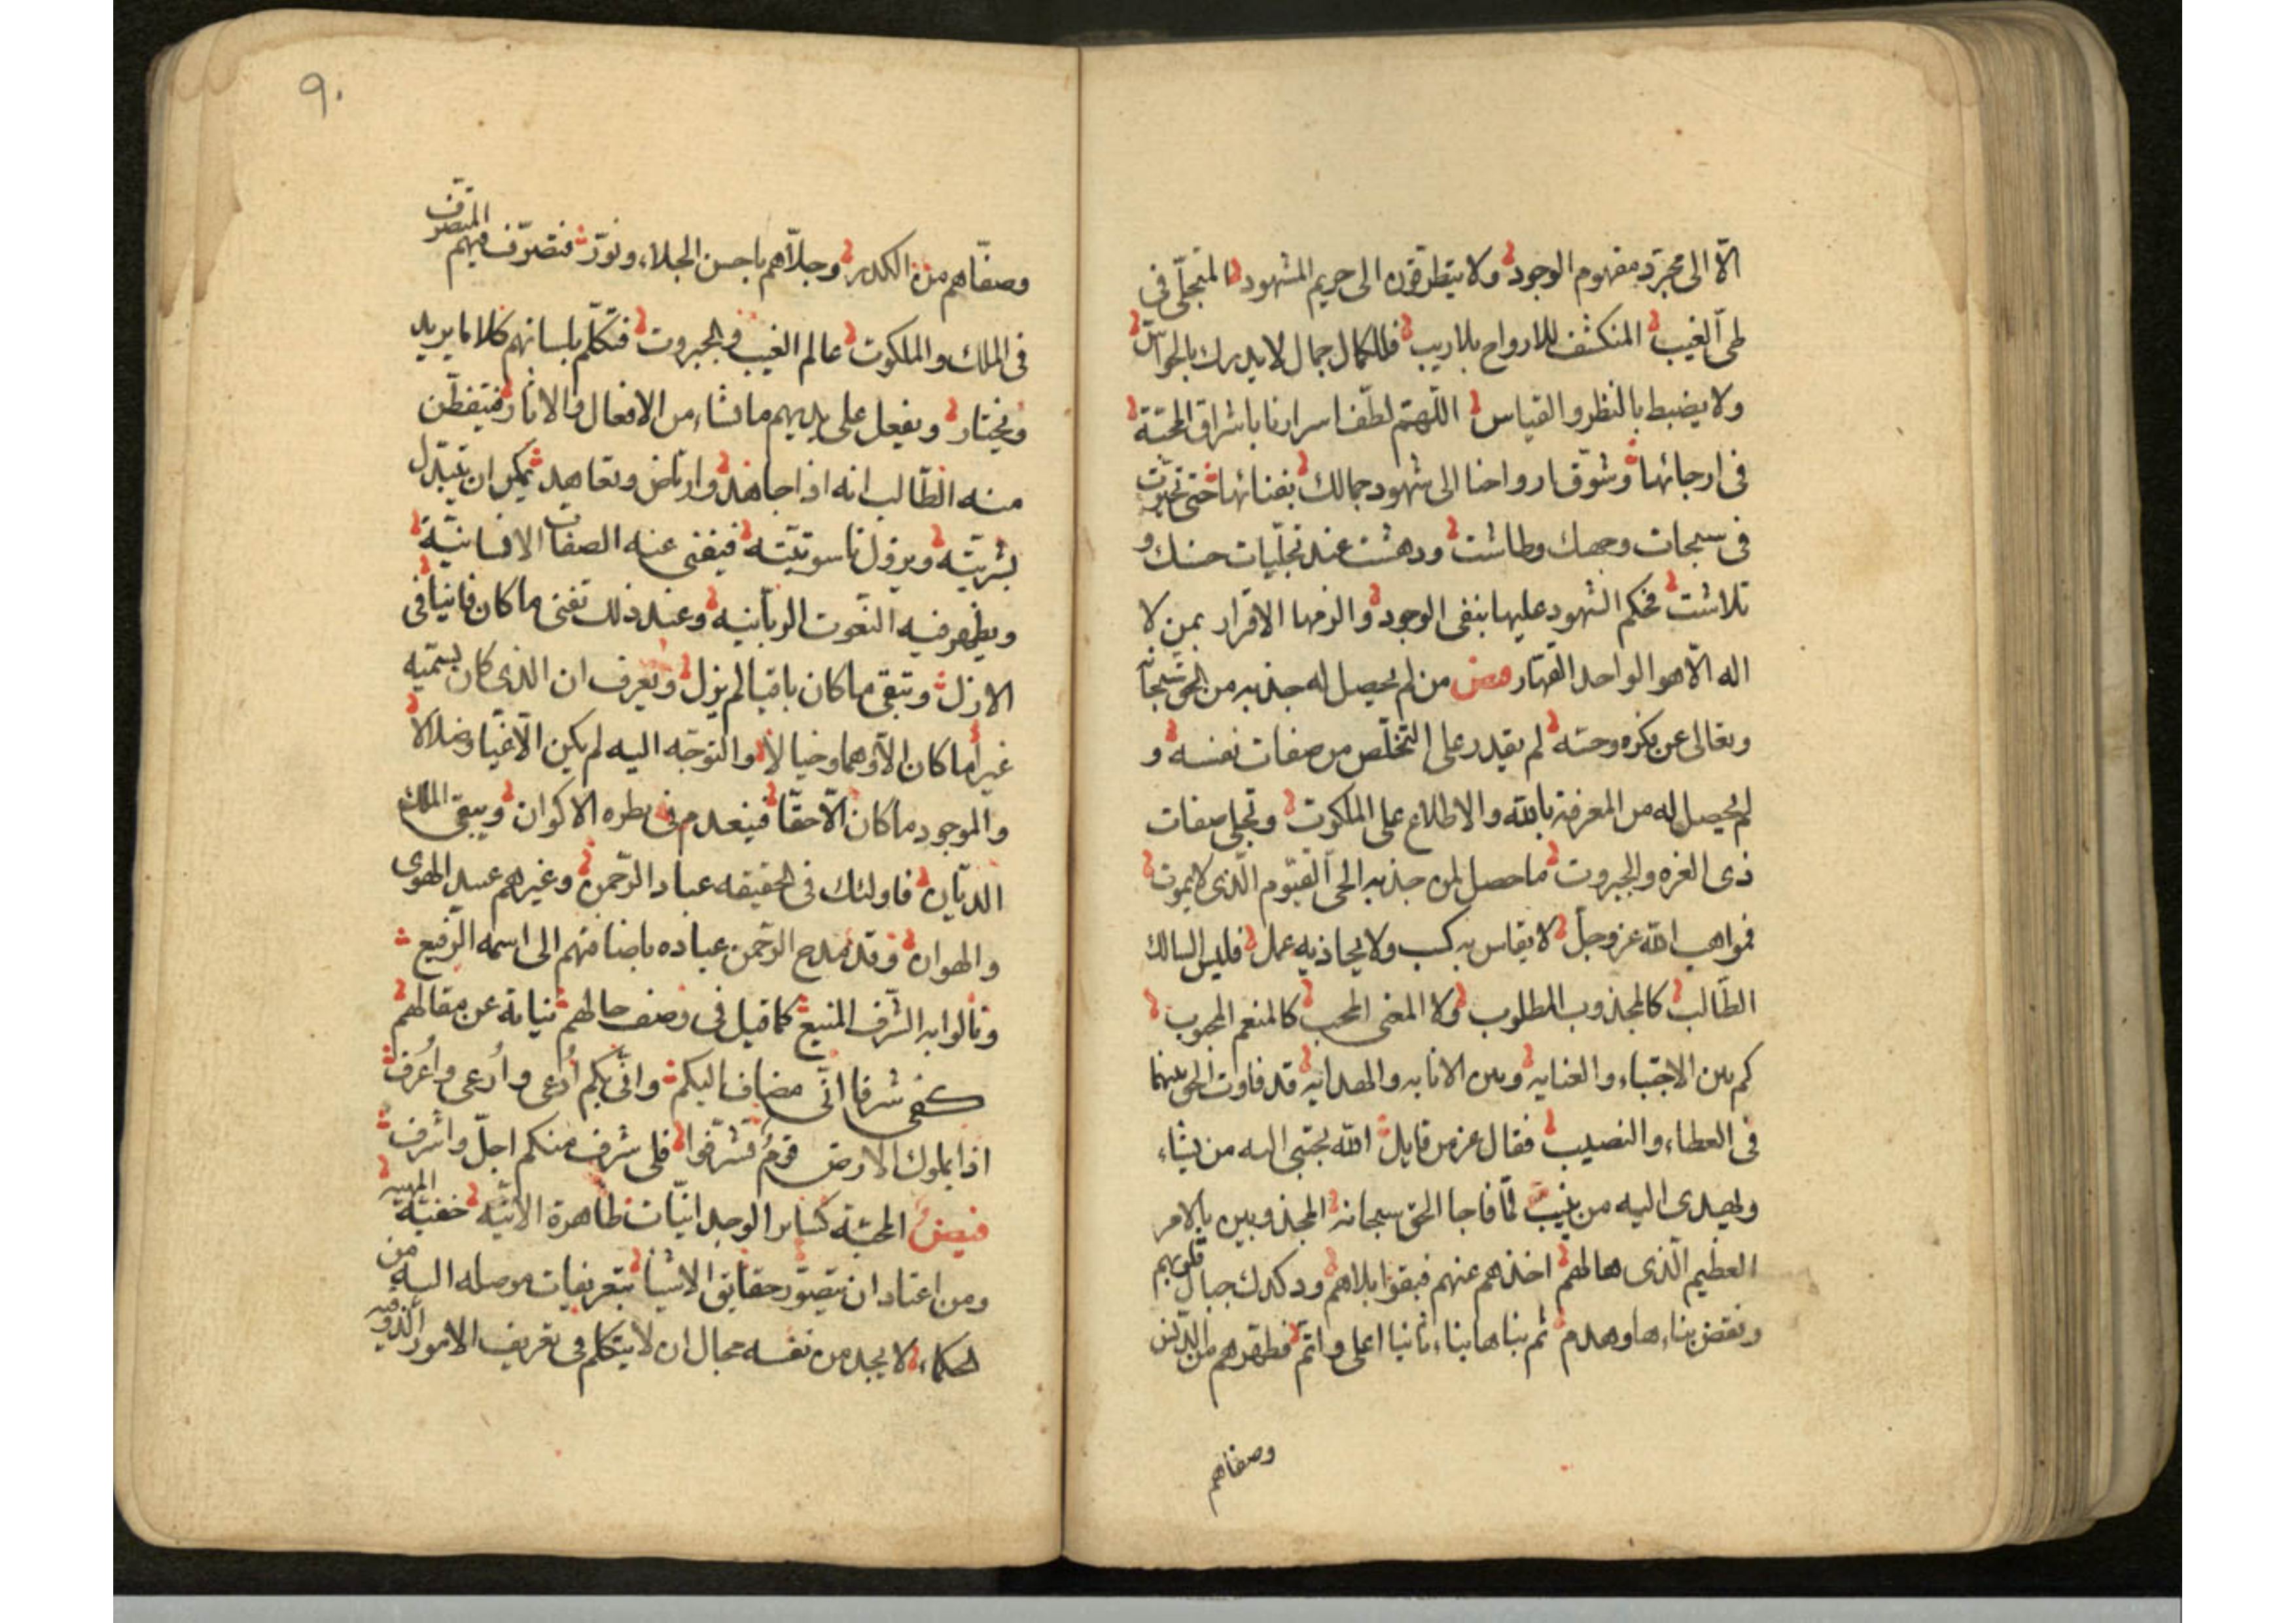 الّا الى مجرّد مفهوم الوجود ولا يتطرّقون الى حريم المشهود المتجلّى فى
طىّ الغيب المنكشف للارواح بلاريب فللكمال جمال لا يدرك بالحواسّ
ولا يضبط بالنظر والقياس اللّهمّ لطّف اسرارنا باشراق المحبّة
فى ارجائها وشوّق ارواحنا الى شهود جمالك بفنائها حتى تحيرت
فى سبحات وجهك وطاشت ودهشت عند تجلّيات حسنك و
تلاشت فحكم الشهود عليها بنفى الوجود والزمها الاقرار بمن لا
اله الّا هو الواحد القهّار فيض من لم يحصل له جذبه من الحق سبحانه
وتعالى عن فكره وحسّه لم يقدر على التخلّص من صفات نفسه و
لم يحصل له من المعرفة بالله والاطلاع على الملكوت وتجلى صفات
ذى العزه والجبروت ما حصل لمن جذبه الحى القيّوم الّذى لا يموت
فمواهب الله عز وجلّ لا يقاس به كسب ولا يحاذيه عمل فليس السالك
الطّالب كالمجذوب المطلوب ولا المعنى المحب كالمنعم المحبوب
كم بين الاجتباء والعنايه وبين الانابه والهدايه قد فاوت الحق بينهما
فى العطاء والنصيب فقال عز من قايل الله يجتبى اليه من يشاء
ويهدى اليه من ينيب لمّا فاجا الحق سبحانه المجذوبين بالامر
العظيم الّذى هالهم اخذهم عنهم فبقوا بلاهم ودكدك جبال قلوبهم
ونقض بناءها وهدم ثم بناها بناء ثانيا اعلى واتمّ فطهّرهم من الدّنس
وصفاهم
٩٠
وصفّاهم من الكدر وجلّاهم باحسن الجلاء ونوّر فتصرّف فيهم المتصرّف
فى الملك والملكوت عالم الغيب والجبروت فتكلّم بلسانهم كلاما يريد
ويختار ويفعل على يديهم ما يشاء من الافعال والاثار فيتفطّن
منه الطّالب انه اذا جاهد وارتاض وتعاهد يمكن ان يتبدّل
بشريّته ويزول ناسوتيّته فيفنى عنه الصفات الانسانيّة
ويظهر فيه النّعوت الربّانيه وعند ذلك تفنى ما كان فانيا فى
الازل وتبقى ما كان باقيا لم يزل ويعرف ان الذى كان يسمّيه
غيرا ما كان الّا وهما وخيالا والتوجّه اليه لم يكن الّا غيّا وضلالا
والموجود ما كان الّا حقّا فينعدم فى نظره الاكوان ويبقى الملك
الديّان فاولئك فى الحقيقه عباد الرّحمن وغيرهم عبيد الهوى
والهوان وقد مدح الرحمن عباده باضافتهم الى اسمه الرّفيع
ونالوا به الشّرف المنيع كما قيل فى وصف حالهم نيابة عن مقالهم
كفى شرفا انّى مضاف اليكم وانّى بكم اُدعى واُرعى واُعرف
اذا بملوك الارض قوم تشرّفوا فلى شرف منكم اجلّ واشرف
فيض المحبّة كساير الوجدانيّات ظاهرة الانيّه خفيّة المهيه
ومن اعتاد ان يتصوّر حقايق الاشيا بتعريفات موصله اليه من
الحكماء لا يجد من نفسه مجال ان لا يتكلم فى تعريف الامور الذوقيه